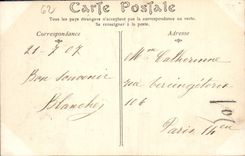 62
Carte Postale
Tous les pays étrangers n'acceptent pas la correspondance au recto.
Se renseigner à la poste.
Correspondance
Adresse
21-8-07
Bon Souvenir
Blanche
Catherinne
rue vercingétorix
106
Paris 14em